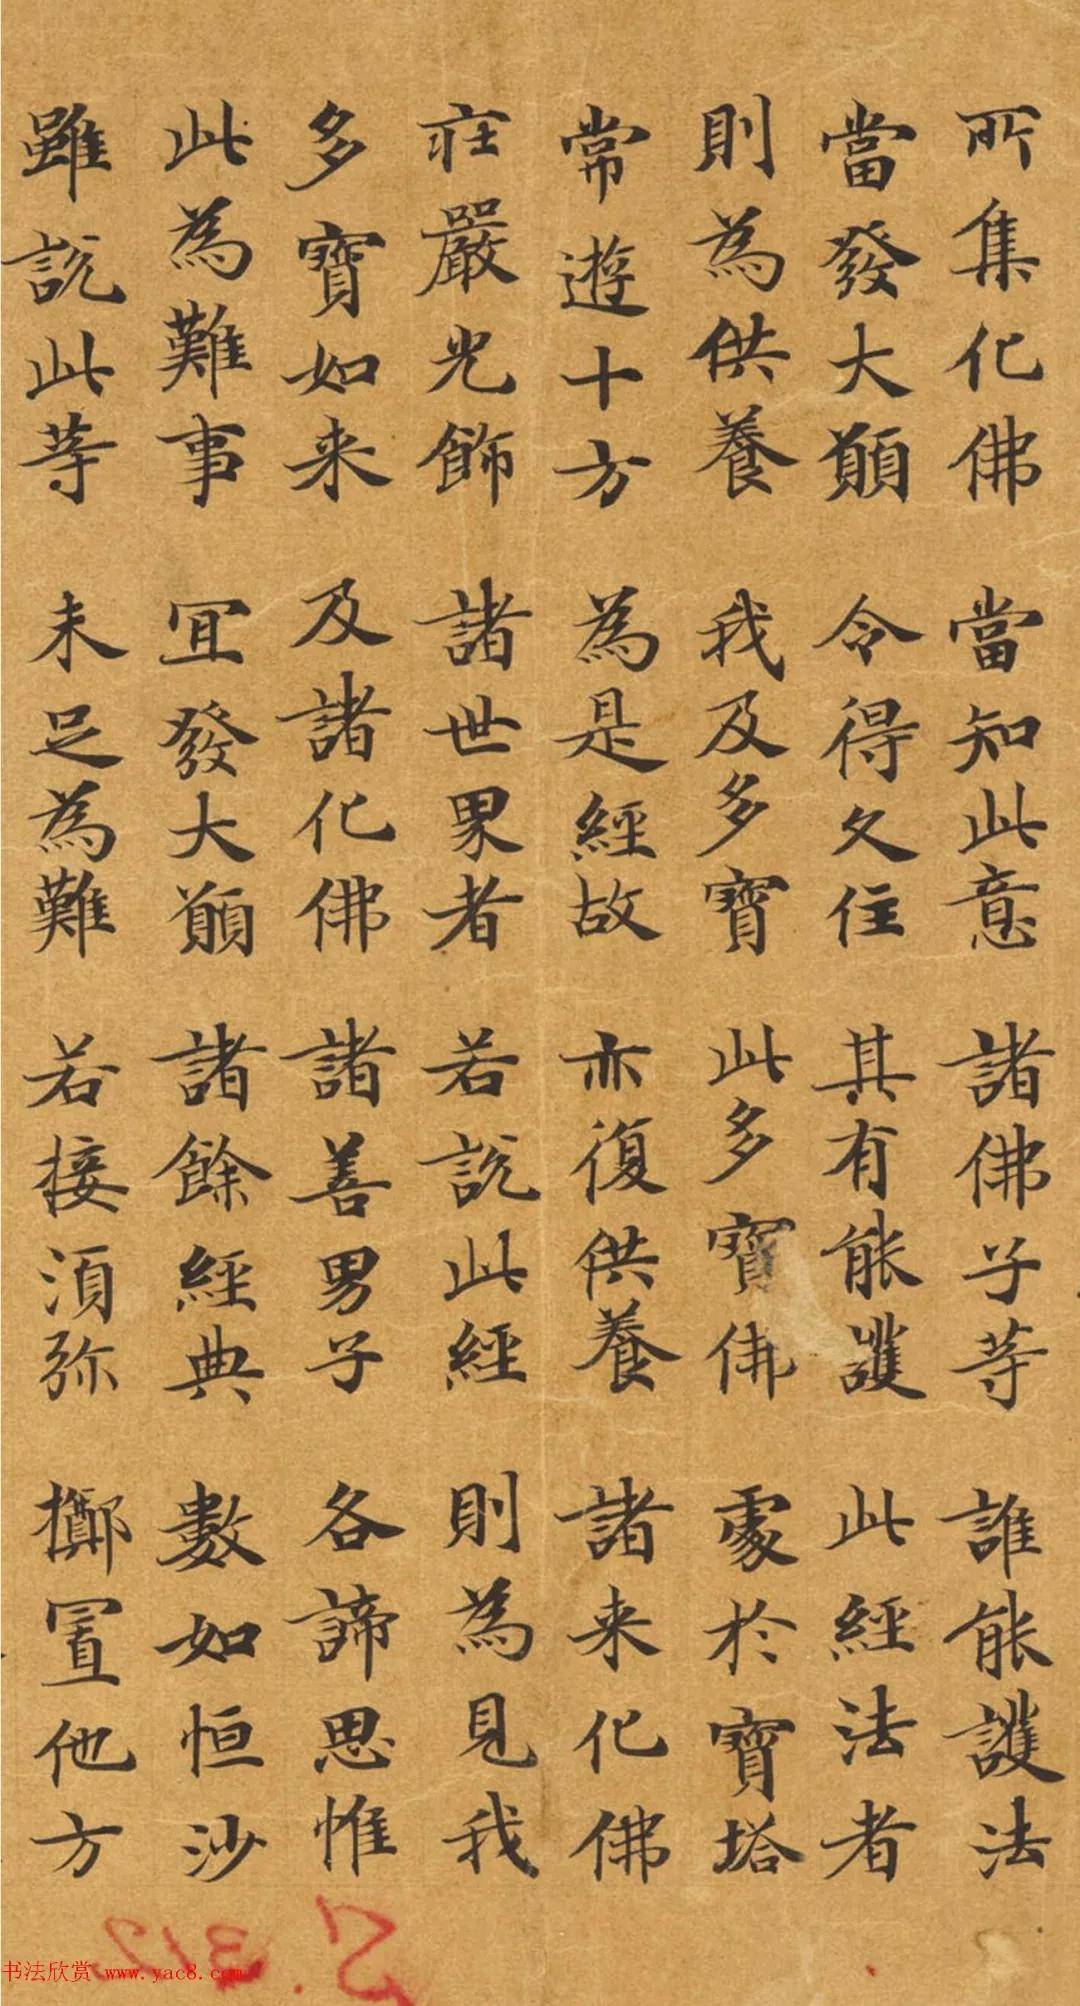 所集化佛 當知此意 諸佛子等 誰能護法
當發大願 令得久住 其有能護 此經法者
則為供養 我及多寶 此多寶佛 處於寶塔
常遊十方 為是經故 亦復供養 諸来化佛
莊嚴光飾 諸世界者 若說此經 則為見我
多寶如来 及諸化佛 諸善男子 各諦思惟
此為難事 宜發大願 諸餘經典 數如恒沙
雖說此等 未足為難 若接須弥 擲置他方
书法欣赏 www.yac8.com